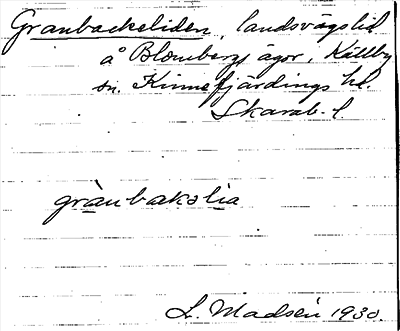 Granbackeliden, landsvägslid
å Blombergs ägor, Källby
sn. Kinnefjärdings hd.
Skarab. l.
grànbakəlia
L. Madsén 1930.